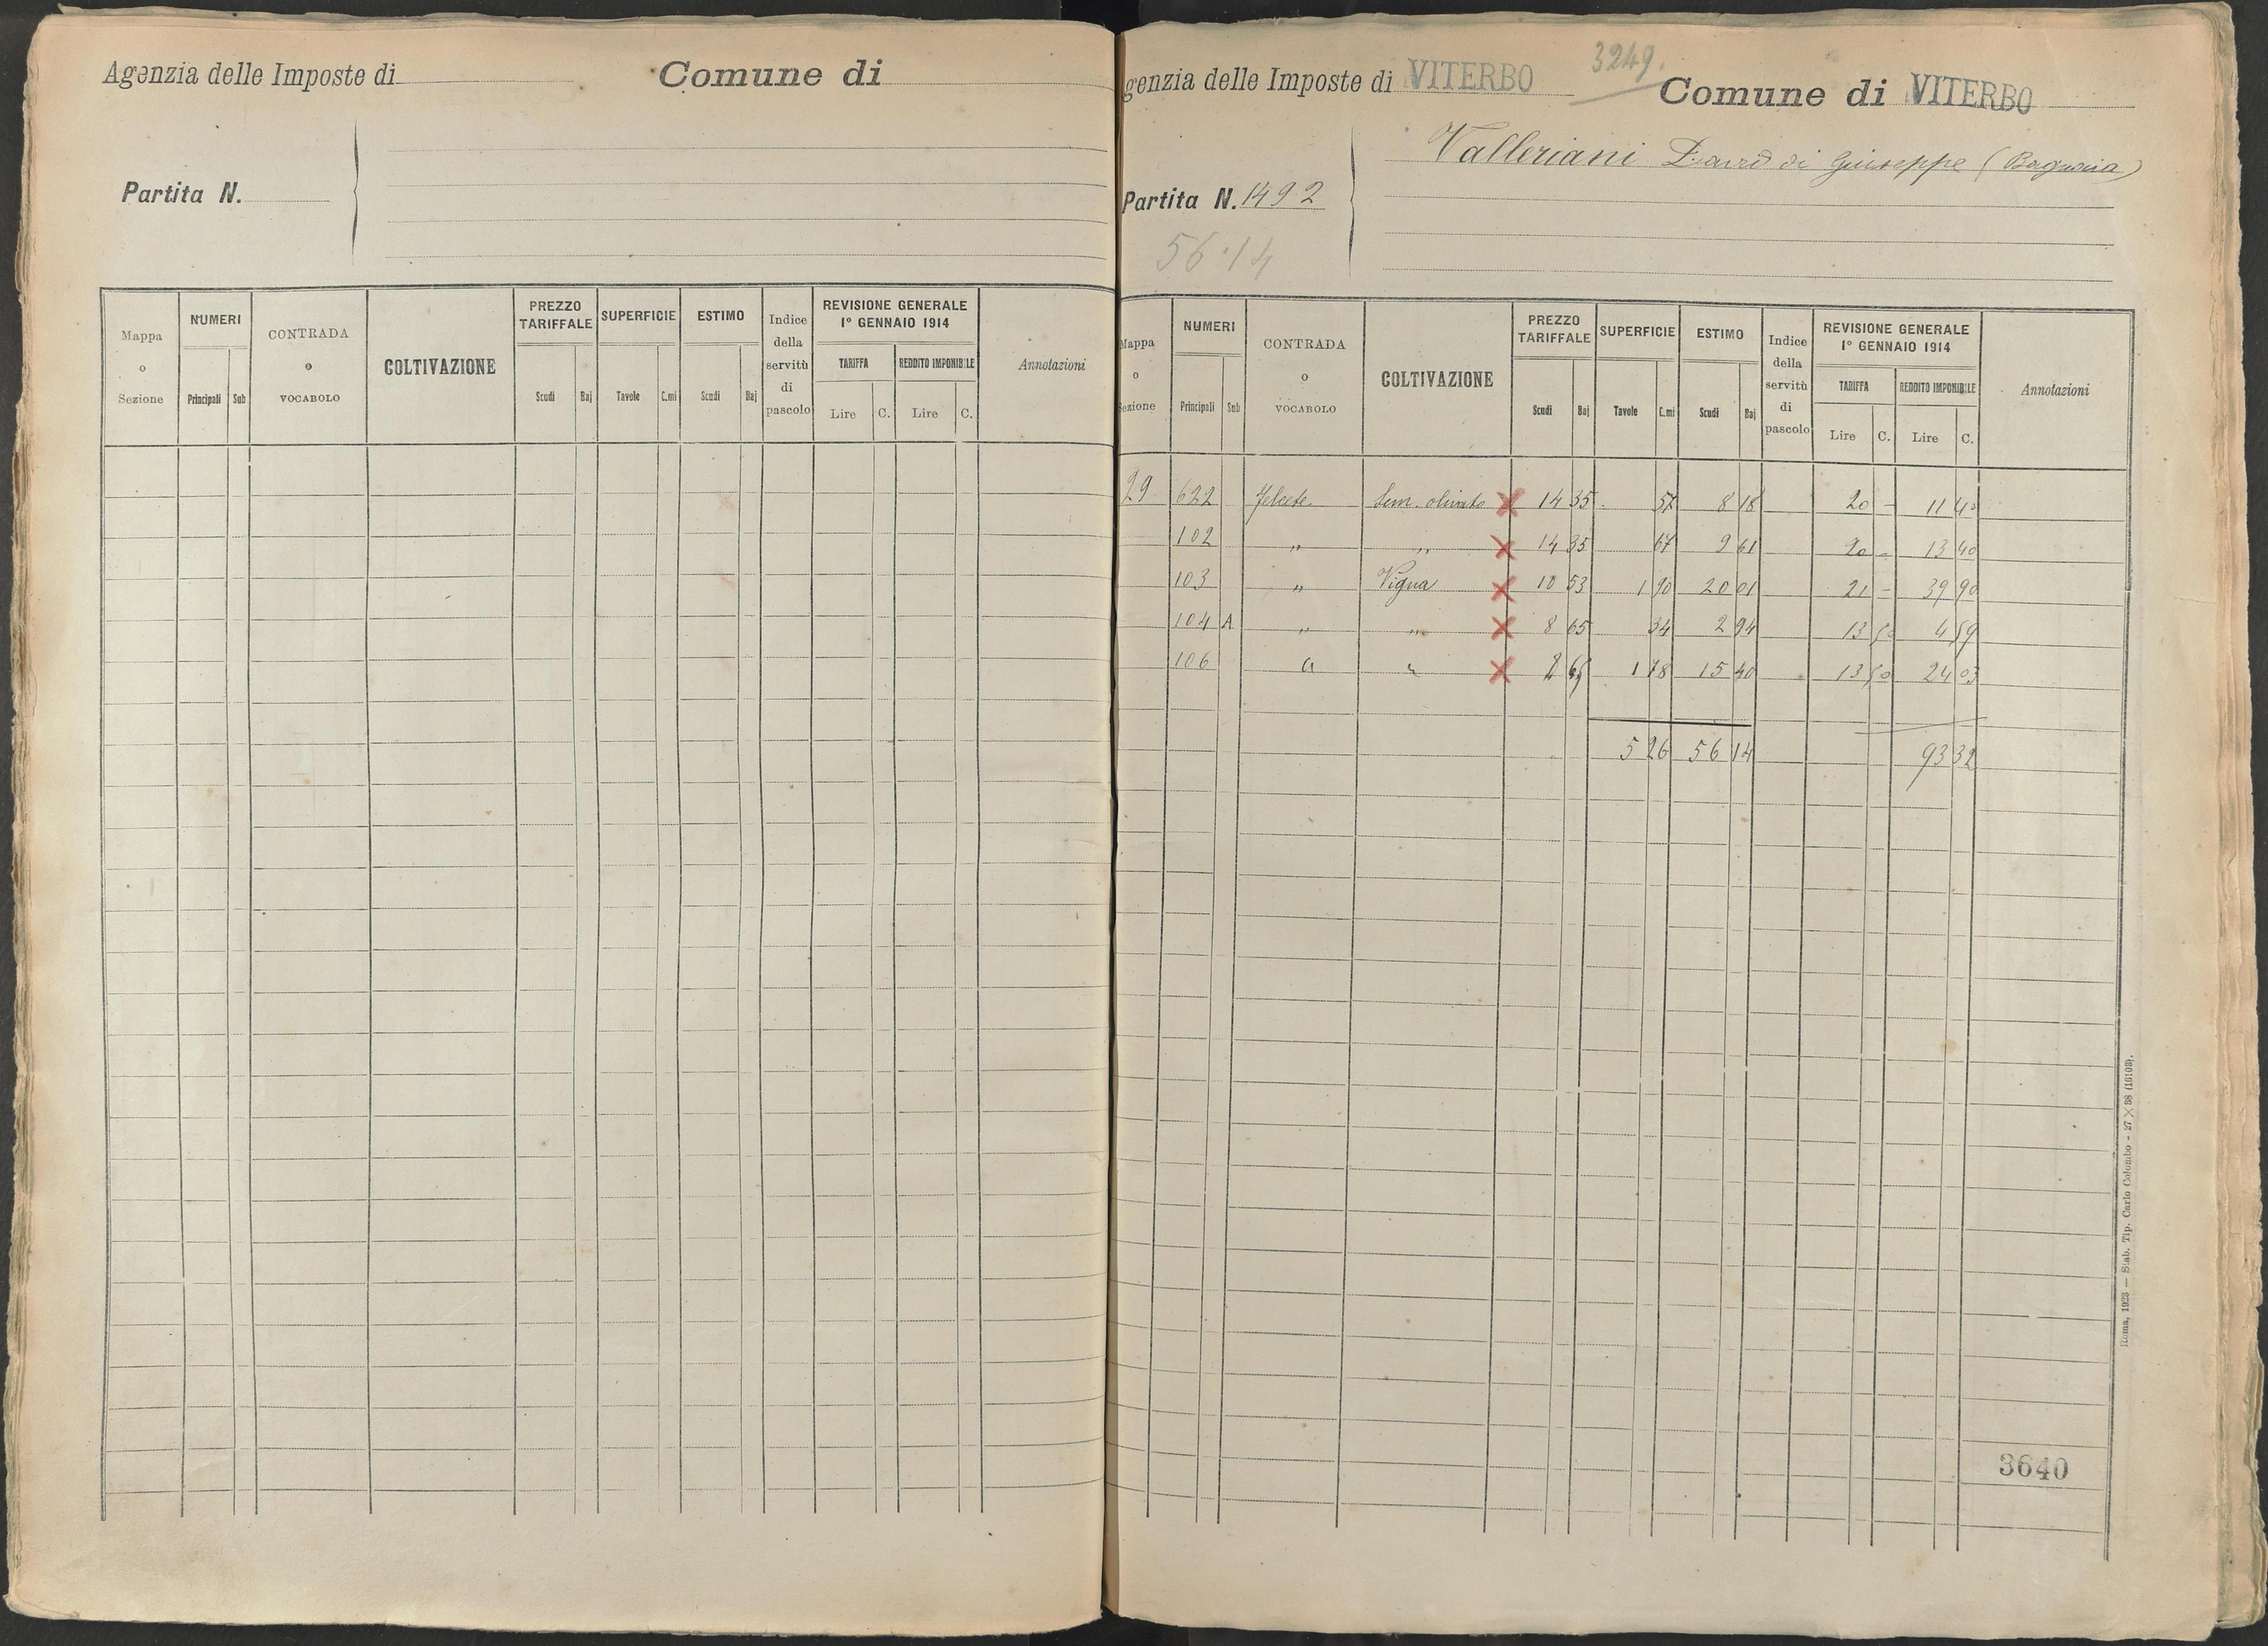 Agenzia delle Imposte di
Comune di
Partita N.
Mappa o Sezione
NUMERI
Principali Sub
CONTRADA o VOCABOLO
COLTIVAZIONE
PREZZO TARIFFALE
Scudi Baj
SUPERFICIE
Tavole C.mi
ESTIMO
Scudi Baj
Indice della servitù di pascolo
REVISIONE GENERALE 1° GENNAIO 1914
TARIFFA REDDITO IMPONIBILE
Lire C. Lire C.
Annotazioni
3249.
genzia delle Imposte di VITERBO
Comune di VITERBO
Valleriani David di Giuseppe (Bagnaia)
Partita N. 1492
56.14
Mappa o Sezione
NUMERI
Principali Sub
CONTRADA o VOCABOLO
COLTIVAZIONE
PREZZO TARIFFALE
Scudi Baj
SUPERFICIE
Tavole C.mi
ESTIMO
Scudi Baj
Indice della servitù di pascolo
REVISIONE GENERALE 1° GENNAIO 1914
TARIFFA REDDITO IMPONIBILE
Lire C. Lire C.
Annotazioni
29 622 Sem. olivato X 14 35 57 8 18 20 – 11 40
102 " " X 14 35 67 9 61 20 – 13 40
103 " Vigna X 10 53 1 90 20 01 21 – 39 90
104 A " " X 8 65 34 2 94 13 50 4 59
106 " " X 8 65 1 78 15 40 13 50 24 03
5 26 56 14 93 32
3640
Roma, 1923 — Stab. Tip. Carlo Colombo - 27 × 38 (16103).